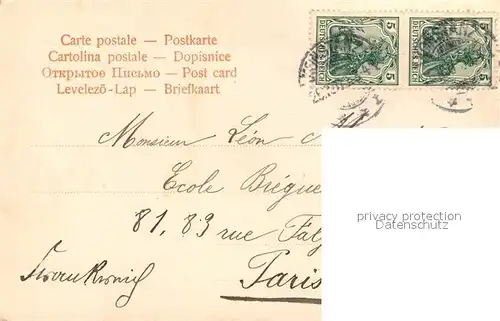 Carte postale — Postkarte
Cartolina postale — Dopisnice
Открытое Письмо — Post card
Levelező-Lap — Briefkaart
5 DEUTSCHES REICH 5
5 DEUTSCHES REICH 5
Monsieur Léon
Ecole Brégue
81, 83 rue Fal
Frankreich
Paris
privacy protection
Datenschutz